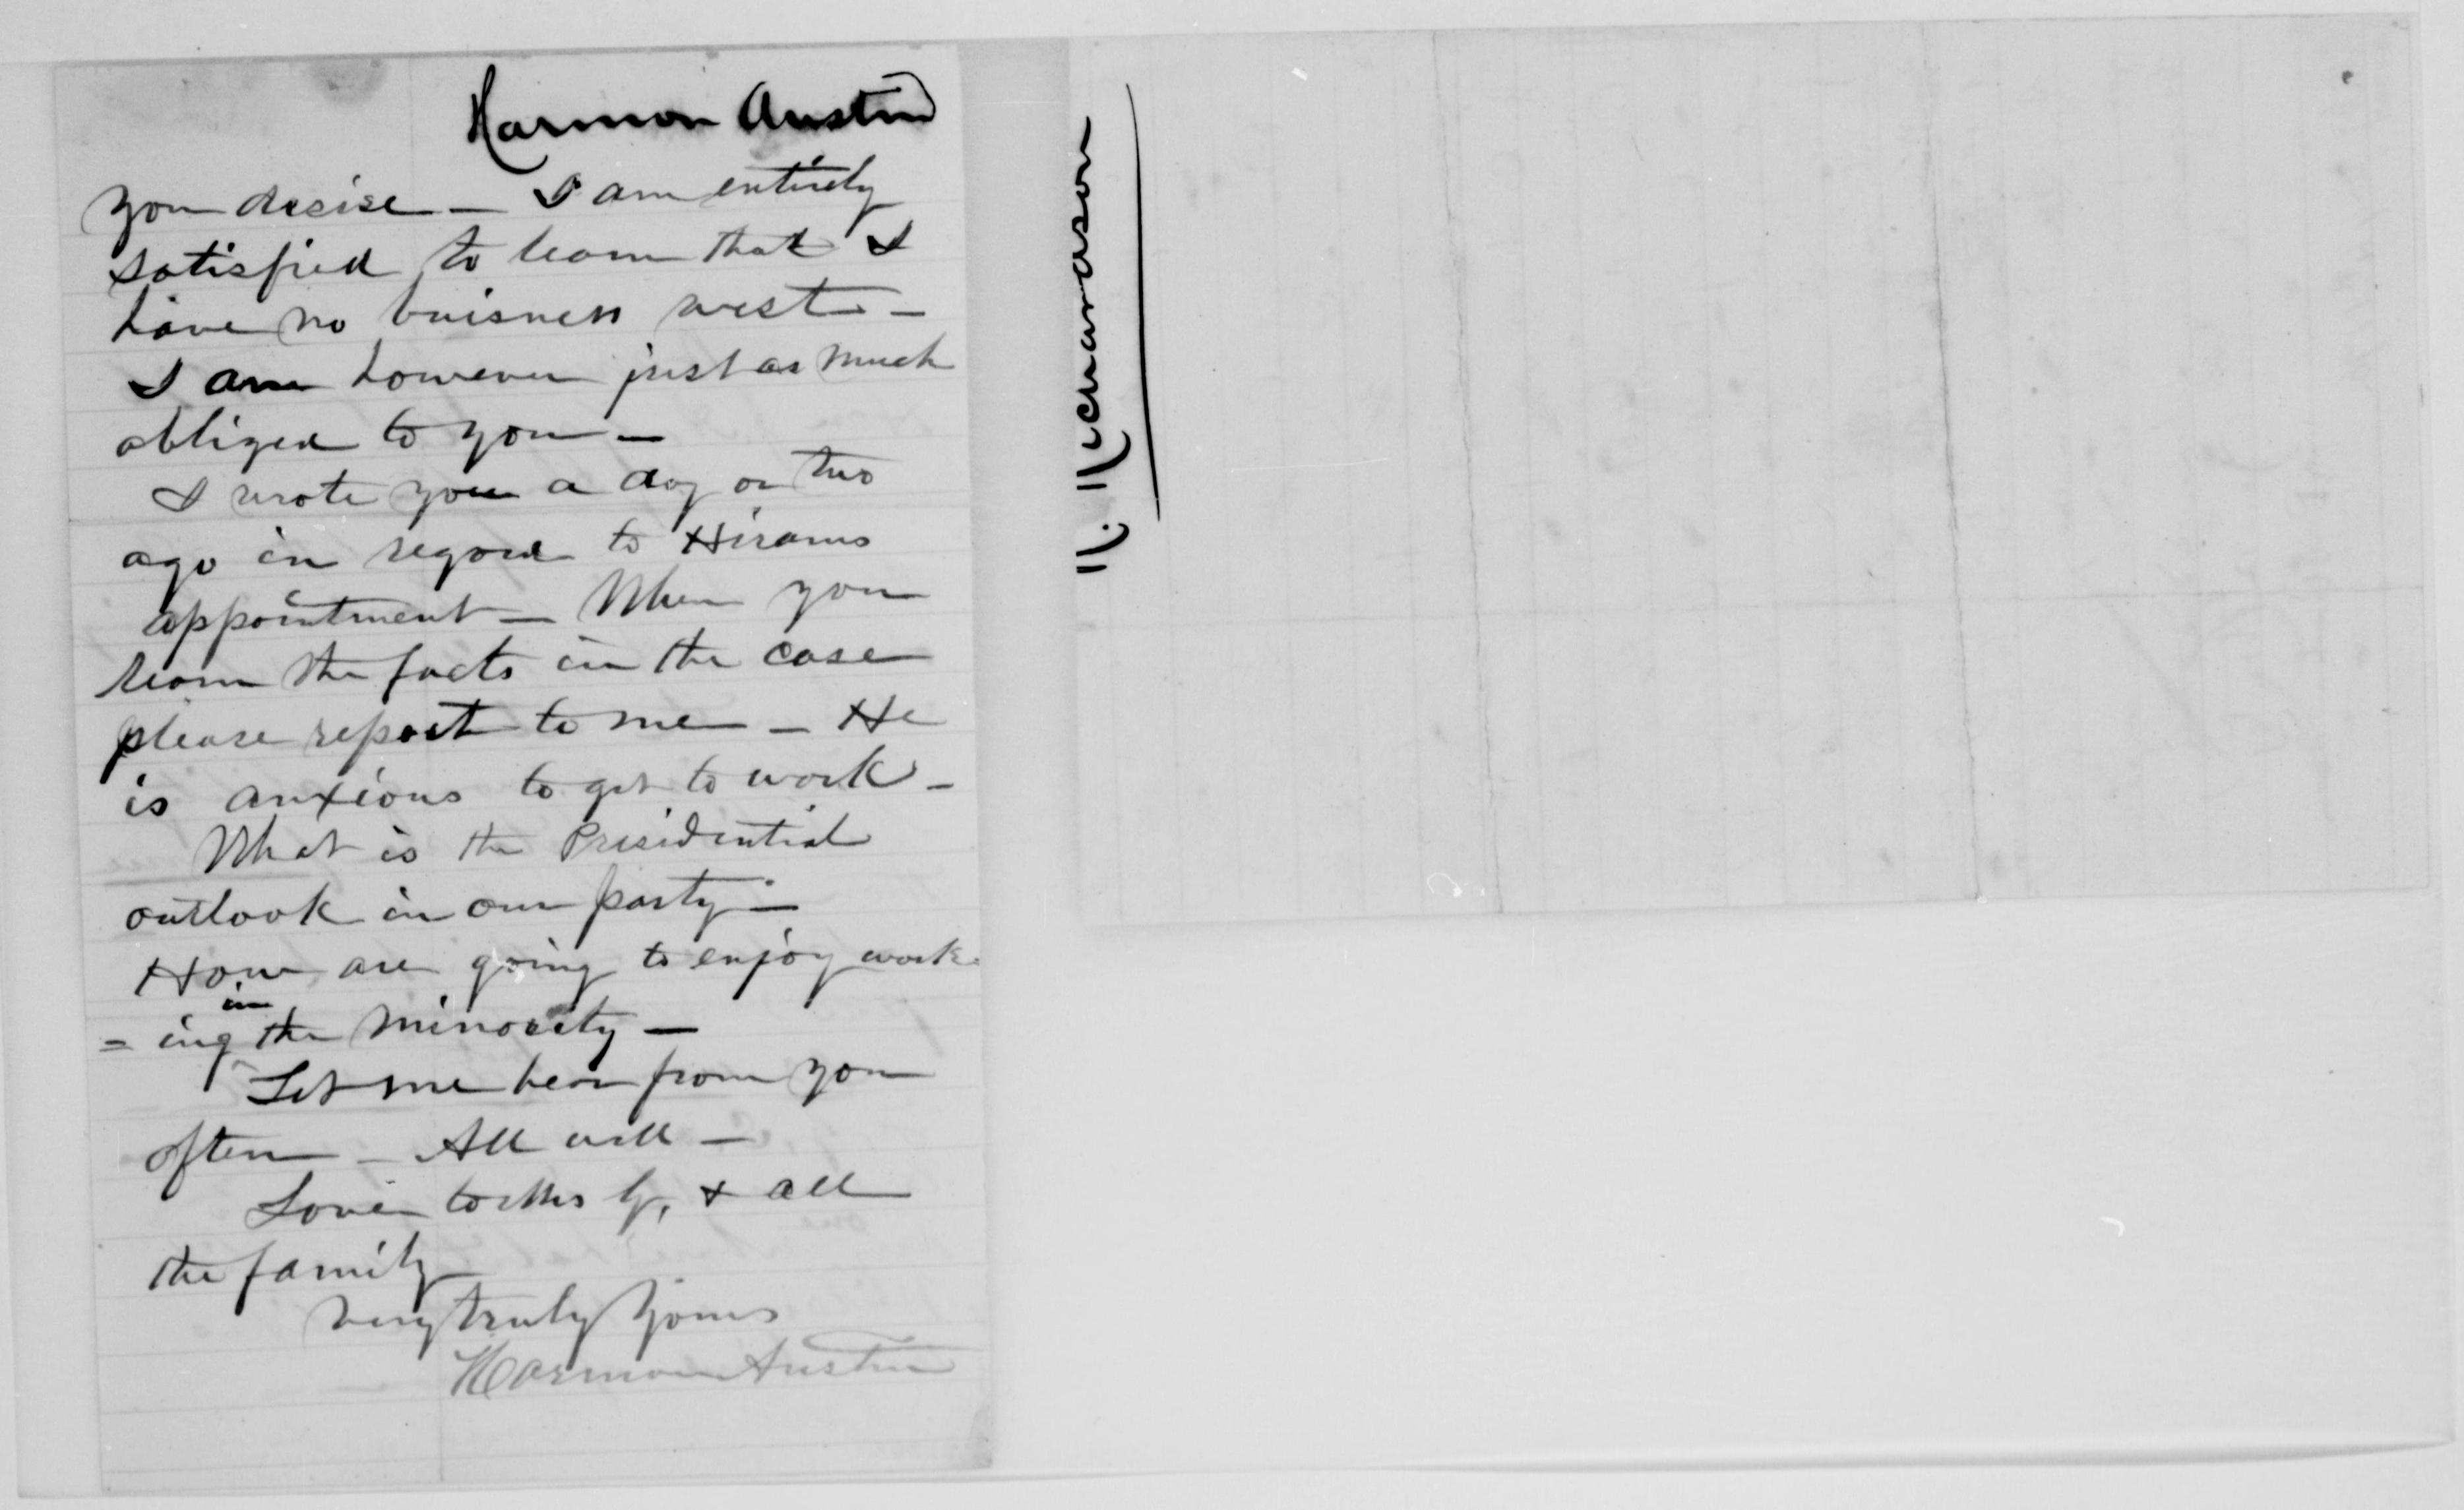 Harmon Austin
you desise — I am entirely
satisfied to learn that I
have no buisness west —
I am however just as much
obliged to you —
I wrote you a day or two
ago in regard to Hirams
appointment — When you
learn the facts in the case
please report to me — He
is anxious to get to work —
What is the Presidential
outlook in our party —
How are going to enjoy work
in
= ing the minority —
Let me hear from you
often — All well —
Love to Mrs G, & all
the family
very truly yours
Harmon Austin